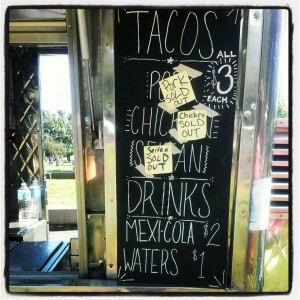 TACOS
ALL
$3
EACH
Pork
SOLD
OUT
Chicken
SOLD
OUT
Seitan
SOLD
OUT
DRINKS
MEXI-COLA $2
WATERS $1